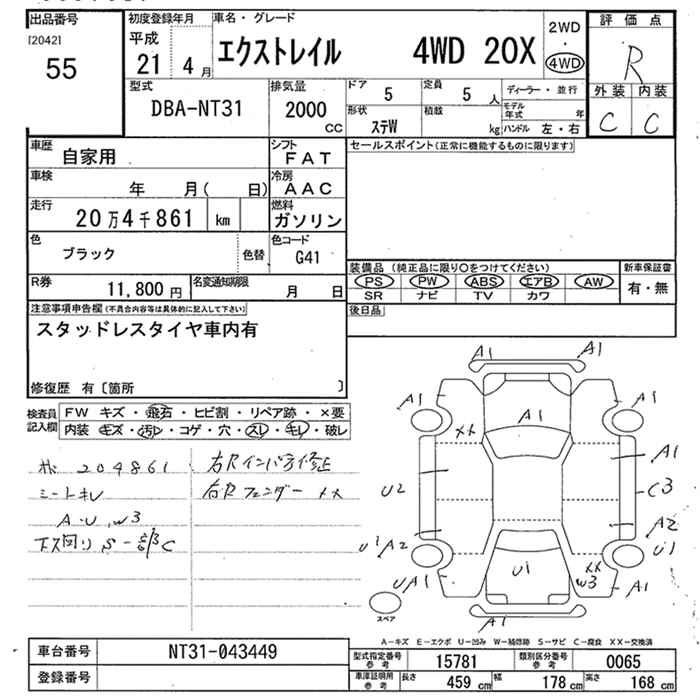 出品番号
[20421
55
初度登録年月
平成
21 4 月
車名・グレード
エクストレイル 4WD 20X
2WD
・
4WD
評価点
R
外装 内装
C C
型式
DBA-NT31
排気量
2000
CC
ドア
5
定員
5 人
形状
ステW
積載
kg
ディーラー・並行
モデル年式 年
ハンドル 左・右
車歴
自家用
シフト
FAT
車検
年 月( 日)
冷房
AAC
走行
20万4千861 km
燃料
ガソリン
色
ブラック
色替
色コード
G41
R券
11,800 円
名変通知期限
月 日
セールスポイント(正常に機能するものに限ります)
装備品 (純正品に限り○をつけてください)
PS PW ABS エアB AW
SR ナビ TV カワ
新車保証書
有・無
後日品
注意事項申告欄(不具合内容等は具体的に記入して下さい)
スタッドレスタイヤ車内有
修復歴 有〔箇所 〕
検査員記入欄
FW キズ・飛石・ヒビ割・リペア跡・×要
内装 キズ・汚レ・コゲ・穴・スレ・キレ・破レ
204861
シートキレ
A・U、W3
下回りS
右リヤインパネ修正
右リヤフェンダー XX
A1
A1
A1
A1
A1
XX
A1
U2
C3
A2
U1 A2
U1
U1
XX
W3
UA1
A1
A1
スペア
A-キズ E-エクボ U-凹み W-補修跡 S-サビ C-腐食 XX-交換済
車台番号
NT31-043449
登録番号
型式指定番号
参考
15781
類別区分番号
参考
0065
車庫証明用
参考
長さ 459 cm
幅 178 cm
高さ 168 cm